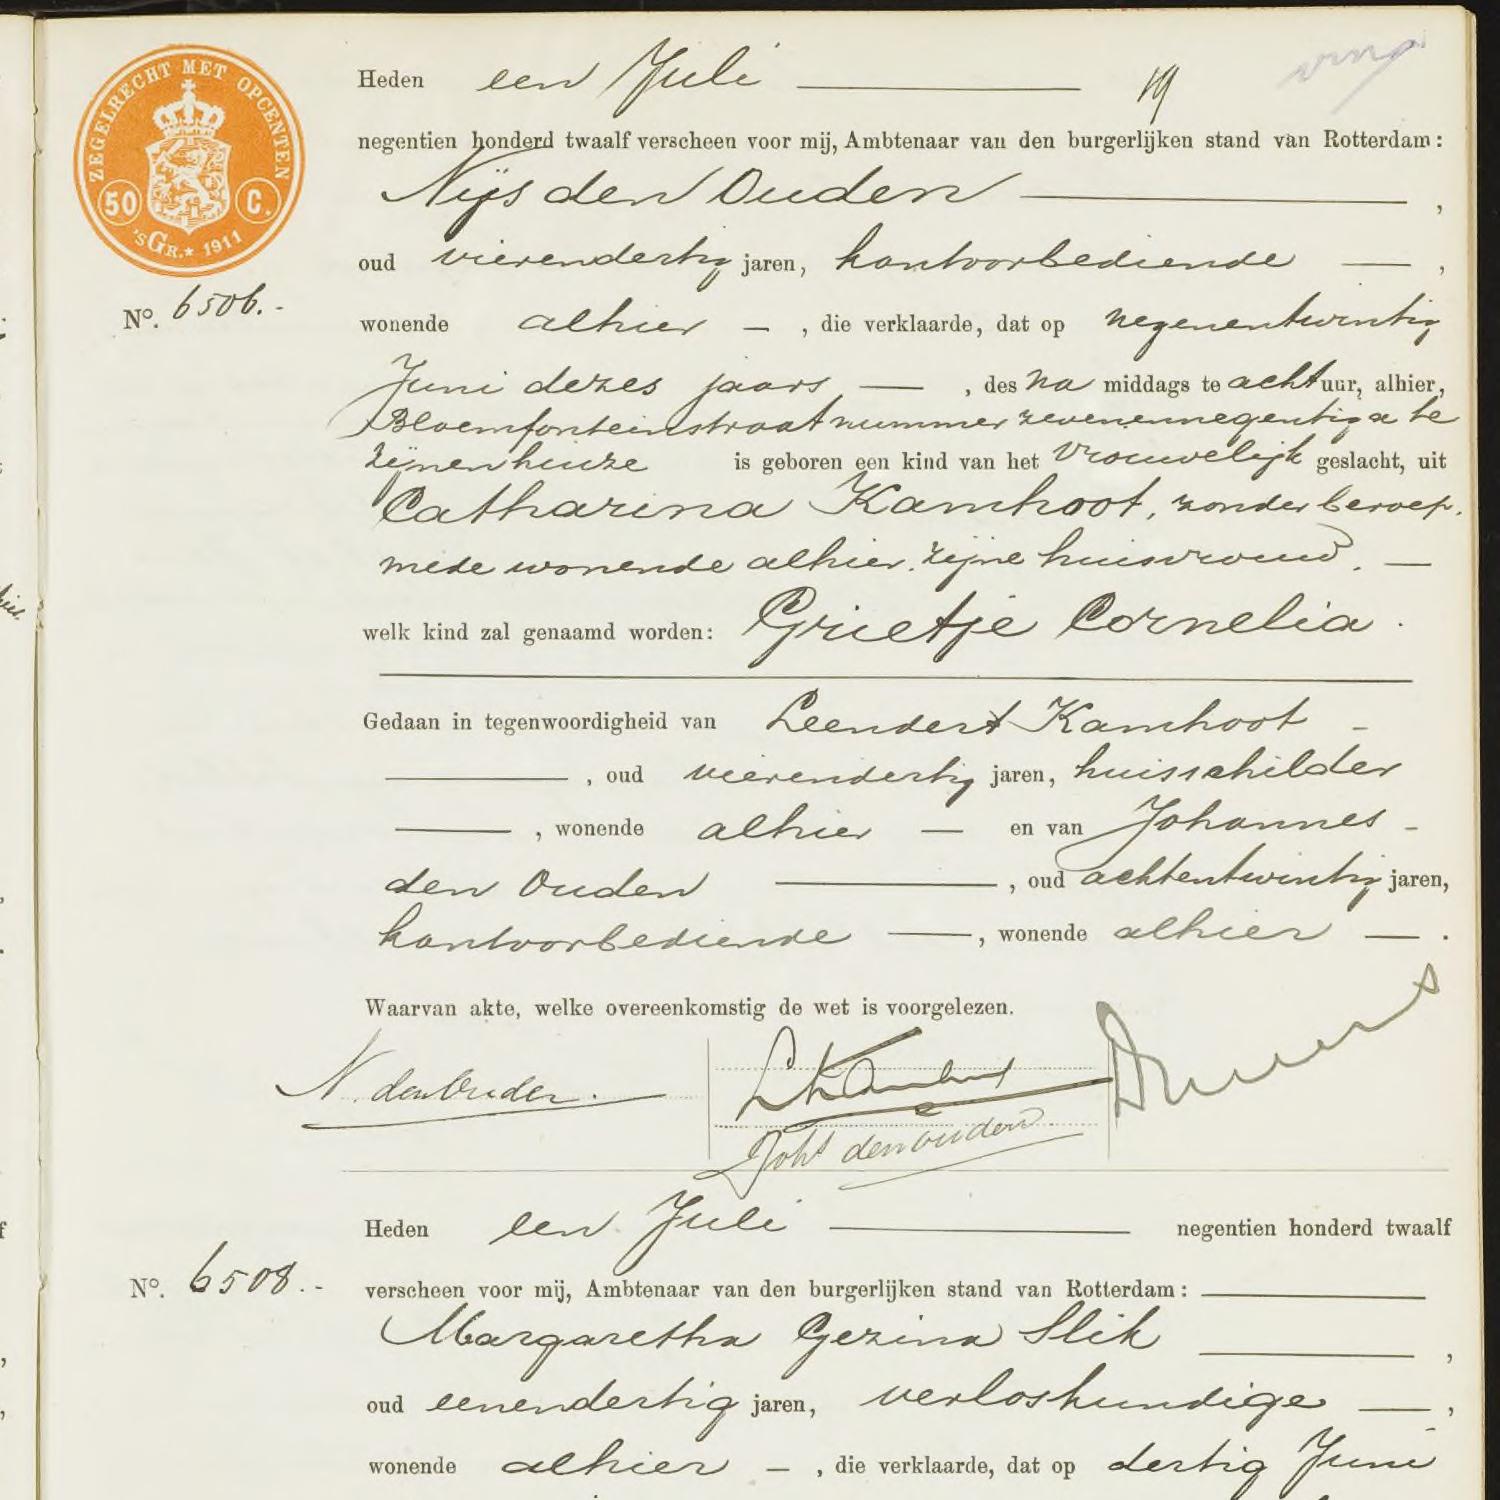 ZEGELRECHT MET OPCENTEN
50 C.
'sGR.★ 1911
Heden een Juli 19
negentien honderd twaalf verscheen voor mij, Ambtenaar van den burgerlijken stand van Rotterdam:
Nijs den Ouden,
oud vierendertig jaren, kantoorbediende,
No. 6506.-
wonende alhier, die verklaarde, dat op negenentwintig
Juni dezes jaars, des na middags te acht uur, alhier,
Bloemfonteinstraat nummer zevenennegentig a te
zijnen huize is geboren een kind van het vrouwelijk geslacht, uit
Catharina Kamhoot, zonder beroep,
mede wonende alhier, zijne huisvrouw.
welk kind zal genaamd worden: Grietje Cornelia.
Gedaan in tegenwoordigheid van Leendert Kamhoot
, oud vierendertig jaren, huisschilder
, wonende alhier en van Johannes
den Ouden, oud achtentwintig jaren,
kantoorbediende, wonende alhier.
Waarvan akte, welke overeenkomstig de wet is voorgelezen.
N. den Ouden.
L Kamhoot
Johs den Ouden.
Heden een Juli negentien honderd twaalf
No. 6508.-
verscheen voor mij, Ambtenaar van den burgerlijken stand van Rotterdam:
Margaretha Gezina Slik,
oud eenendertig jaren, verloskundige,
wonende alhier, die verklaarde, dat op dertig Juni